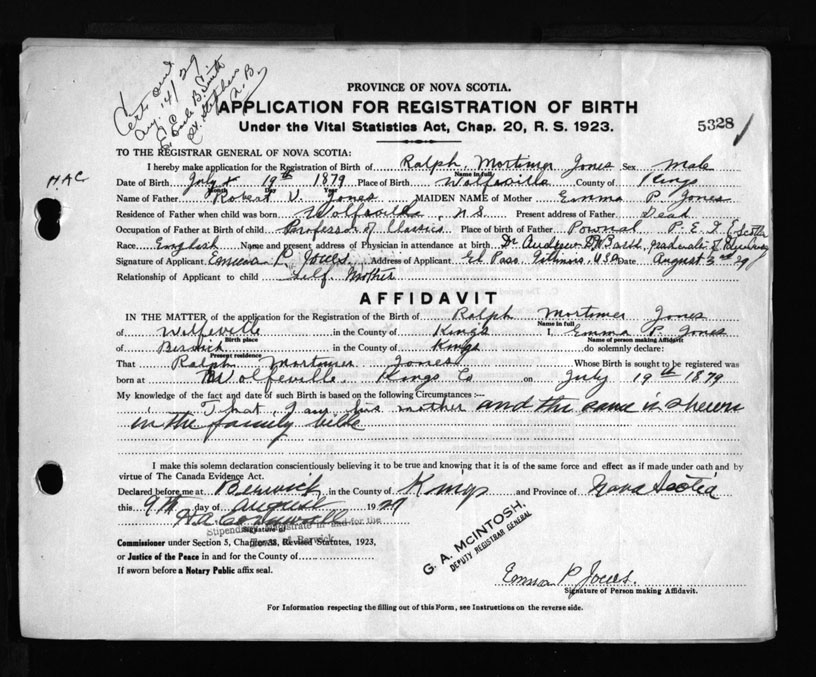 Cert. sent
Aug. 14/29
PROVINCE OF NOVA SCOTIA.
APPLICATION FOR REGISTRATION OF BIRTH
Under the Vital Statistics Act, Chap. 20, R. S. 1923.
5328
TO THE REGISTRAR GENERAL OF NOVA SCOTIA:
I hereby make application for the Registration of Birth of Ralph Mortimer Jones Sex Male
Name in full
H.A.C.
Date of Birth July 19th 1879 Place of Birth Wolfville County of Kings
Month Day Year
Name of Father Robert V. Jones MAIDEN NAME of Mother Emma P. Jones
Residence of Father when child was born Wolfville, N S. Present address of Father Dead
Occupation of Father at Birth of child Professor of Classics Place of birth of Father Pownal P. E. I
Race English Name and present address of Physician in attendance at birth Dr Andrew graduate of
Signature of Applicant Emma P. Jones Address of Applicant El Paso Illinois, USA Date August 3rd 29
Relationship of Applicant to child Self Mother
AFFIDAVIT
IN THE MATTER of the application for the Registration of the Birth of Ralph Mortimer Jones
Name in full
of Wolfeville in the County of Kings I, Emma P. Jones
Birth place Name of person making Affidavit
of Berwick in the County of Kings do solemnly declare:
Present residence
That Ralph Mortimer Jones Whose Birth is sought to be registered was
born at Wolfeville, Kings Co on July 19th 1879
My knowledge of the fact and date of such Birth is based on the following Circumstances:—
That I am his mother and the same is shewn
in the family bible
I make this solemn declaration conscientiously believing it to be true and knowing that it is of the same force and effect as if made under oath and by
virtue of The Canada Evidence Act.
Declared before me at Berwick in the County of Kings and Province of Nova Scotia
this 9th day of August 1929
Signature of
Stipendiary Magistrate in and for the
Commissioner under Section 5, Chapter 38, Revised Statutes, 1923,
Town of Berwick
or Justice of the Peace in and for the County of
If sworn before a Notary Public affix seal.
G. A. McINTOSH,
DEPUTY REGISTRAR GENERAL
Emma P Jones.
Signature of Person making Affidavit.
For Information respecting the filling out of this Form, see Instructions on the reverse side.